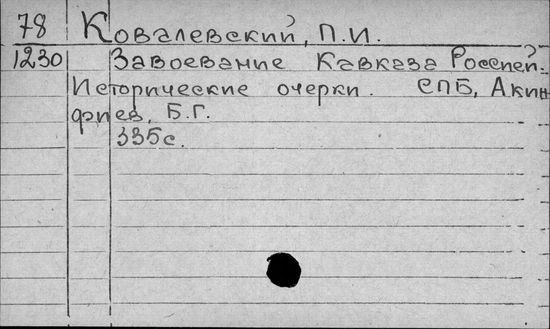 78 Ковалевский, П.И.
1230 Завоевание Кавказа Россией.
Исторические очерки. СПБ, Акин
фиев, Б.Г.
335с.